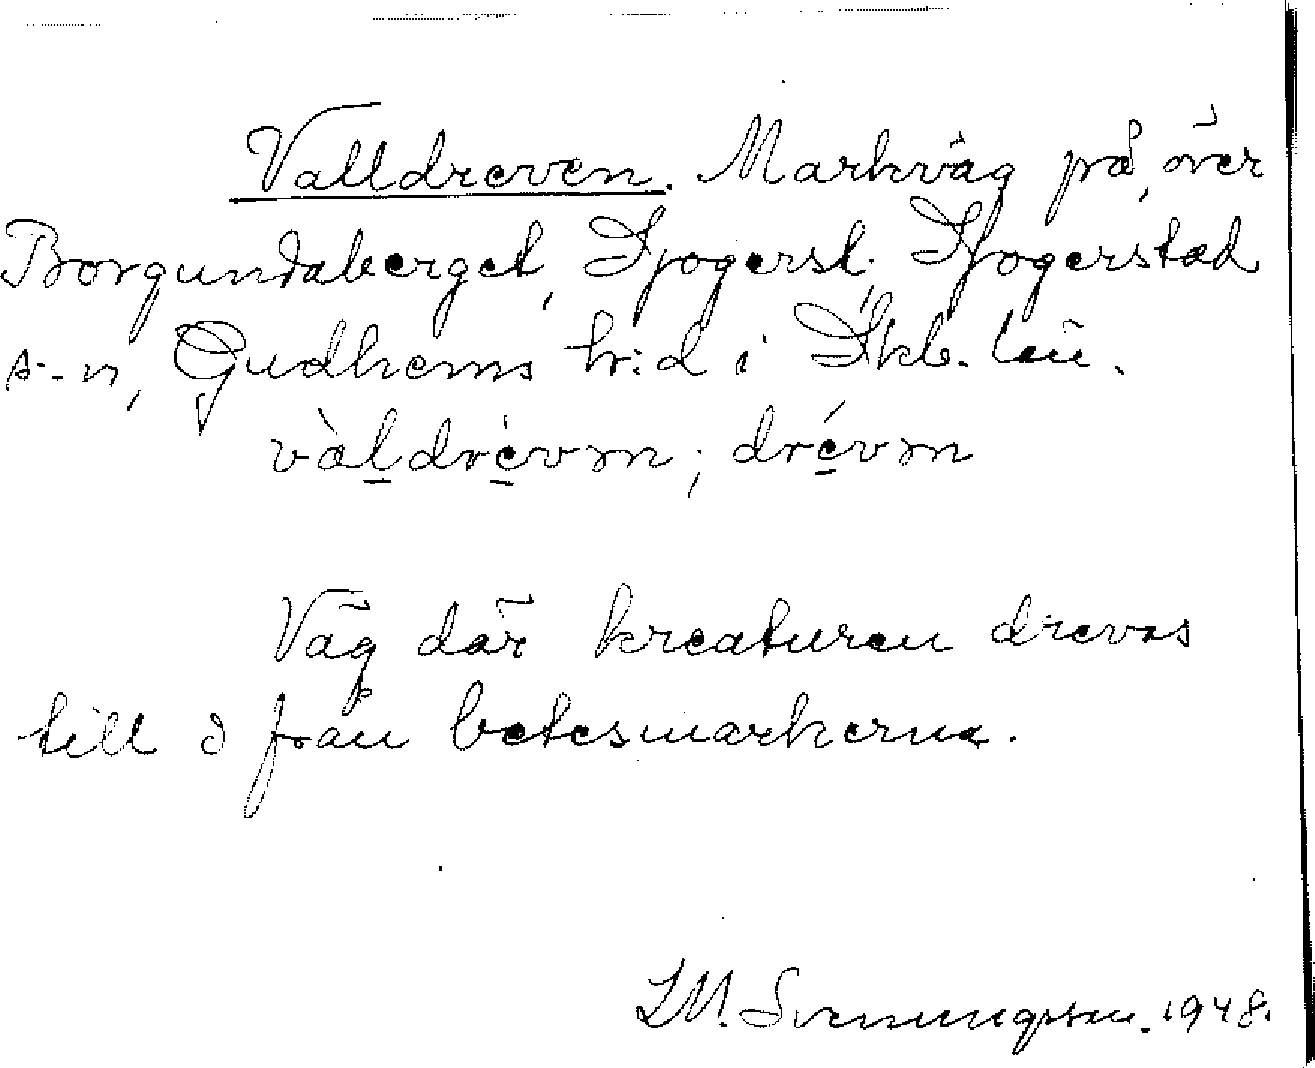 Valldreven. Markväg på, över
Borgundaberget, Sjogerst., Sjogerstad
s-n, Gudhems h:d i Skb. län.
vàldrévm; drévm
Väg där kreaturen drevos
till o från betesmarkerna.
LM. Svenungsson. 1948.